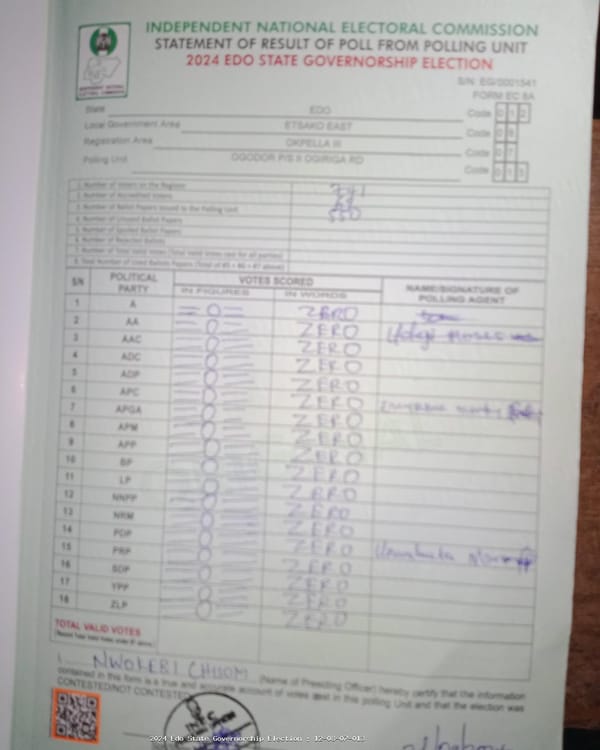 INDEPENDENT NATIONAL ELECTORAL COMMISSION
STATEMENT OF RESULT OF POLL FROM POLLING UNIT
2024 EDO STATE GOVERNORSHIP ELECTION
S/N: EG/0001541
FORM EC 8A
State EDO Code 0 1 2
Local Government Area ETSAKO EAST Code 0 8
Registration Area OKPELLA III Code 0 7
Polling Unit OGODOR P/S II OGIRIGA RD Code 0 1 3
1. Number of Voters on the Register 741
2. Number of Accredited Voters
3. Number of Ballot Papers issued to the Polling Unit 550
4. Number of Unused Ballot Papers
5. Number of Spoiled Ballot Papers
6. Number of Rejected Ballots
7. Number of Total Valid Votes (Total Valid Votes cast for all parties)
8. Total Number of Used Ballot Papers (Total of #5 + #6 + #7 above)
S/N POLITICAL PARTY VOTES SCORED NAME/SIGNATURE OF POLLING AGENT
IN FIGURES IN WORDS
1 A 0 ZERO
2 AA 0 ZERO
3 AAC 0 ZERO
4 ADC 0 ZERO
5 ADP 0 ZERO
6 APC 0 ZERO
7 APGA 0 ZERO
8 APM 0 ZERO
9 APP 0 ZERO
10 BP 0 ZERO
11 LP 0 ZERO
12 NNPP 0 ZERO
13 NRM 0 ZERO
14 PDP 0 ZERO
15 PRP 0 ZERO
16 SDP 0 ZERO
17 YPP 0 ZERO
18 ZLP 0 ZERO
TOTAL VALID VOTES
I, NWOKEBI CHISOM (Name of Presiding Officer) hereby certify that the information
contained in this form is a true and accurate account of votes cast in this polling Unit and that the election was
CONTESTED/NOT CONTESTED
2024 Edo State Governorship Election : 12-08-07-013